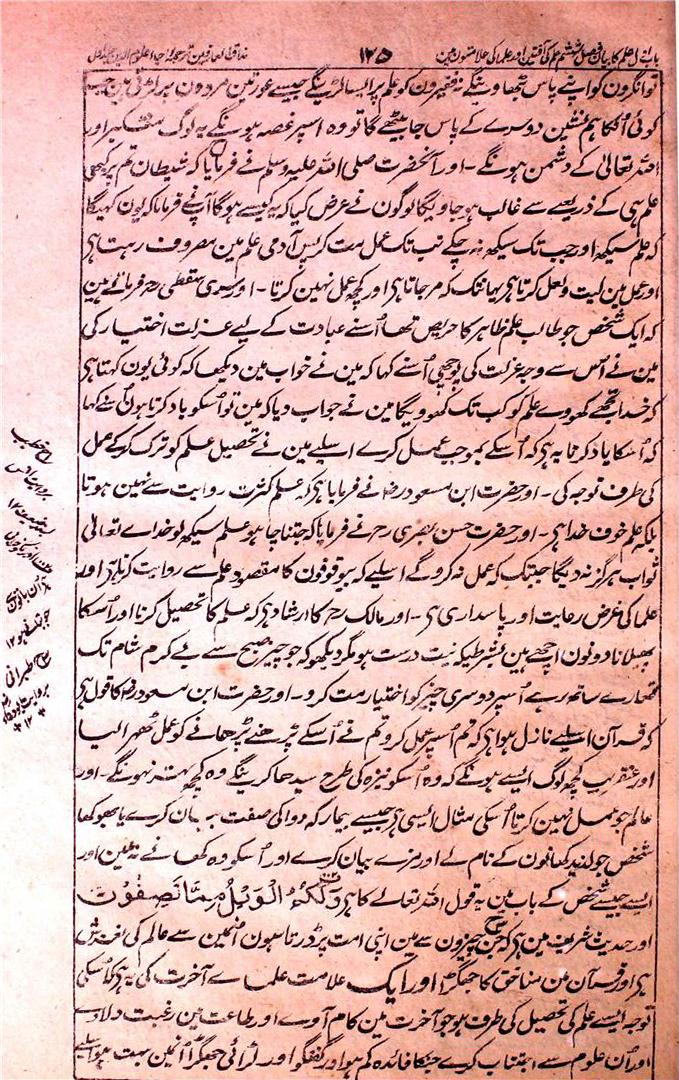 باب اول علم کا بیان فصل ششم علم کی آفتیں اور علما کی علامتوں مین
۱۲۵
مذاق العارفین ترجمہ احیاء علوم الدین جلد اول
توانگرون کو اپنے پاس بٹھاوینگے نہ فقیرون کو علم پر ایسا لڑینگے جیسے عورتین مردون پر لڑتی ہین جب
کوئی اُنکا ہم نشین دوسرے کے پاس جا بیٹھے گا تو وہ اسپر غصہ ہونگے یہ لوگ متکبر اور
اللہ تعالیٰ کے دشمن ہونگے ۔ اور آنحضرت صلی اللہ علیہ وسلم نے فرمایا کہ شیطان تم پر کبھی
علم ہی کے ذریعے سے غالب ہو جاویگا لوگون نے عرض کیا کہ یہ کیسے ہوگا آپنے فرمایا کہ یون کہیگا
کہ علم سیکھ اور جب تک سیکھ نہ چکے تب تک عمل مت کر پس آدمی علم مین مصروف رہتا ہی
اور عمل مین لیت ولعل کرتا ہی یہانتک کہ مر جاتا ہی اور کچھ عمل نہین کرتا ۔ اور سری سقطی رح فرماتے ہین
کہ ایک شخص جو طالب علم ظاہر کا حریص تھا اُسنے عبادت کے لیے عزلت اختیار کی
مین نے اُس سے وجہ عزلت کی پوچھی اُسنے کہا کہ مین نے خواب مین دیکھا کہ کوئی یون کہتا ہی
کہ خدا تجھے کھووے علم کو کب تک کھوویگا مین نے جواب دیا کہ مین تو اُسکو یاد کرتا ہون اُسنے کہا
کہ اُسکا یاد کرنا یہ ہی کہ اُسکے بموجب عمل کرے اسلیے مین نے تحصیل علم کو ترک کرکے عمل
کی طرف توجہ کی ۔ اور حضرت ابن مسعود رض نے فرمایا ہی کہ علم کثرت روایت سے نہین ہوتا
بلکہ علم خوف خدا ہی ۔ اور حضرت حسن بصری رح نے فرمایا کہ جتنا چاہو علم سیکھ لو خداے تعالیٰ
ثواب ہرگز نہ دیگا جبتک کہ عمل نہ کروگے اسلیے کہ بیوقوفون کا مقصود علم سے روایت کرنا ہی اور
علما کی غرض رعایت اور پاسداری ہی ۔ اور مالک رح کا ارشاد ہی کہ علم کا تحصیل کرنا اور اُسکا
پھیلانا دونون اچھے ہین بشرطیکہ نیت درست ہو مگر دیکھو کہ جو چیز صبح سے لے کر شام تک
تمھارے ساتھ رہے اُسپر دوسری چیز کو اختیار مت کرو ۔ اور حضرت ابن مسعود رض کا قول ہی
کہ قرآن اسلیے نازل ہوا ہی کہ تم اُسپر عمل کرو تم نے اُسکے پڑھنے پڑھانے کو عمل ٹھہرا لیا
اور عنقریب کچھ لوگ ایسے ہونگے کہ وہ اُسکو نیزہ کی طرح سیدھا کرینگے وہ کچھ بہتر نہونگے ۔ اور
عالم جو عمل نہین کرتا اُسکی مثال ایسی ہی جیسے بیمار کہ دوا کی صفت بیان کرے یا بھوکھا
شخص جو لذیذ کھانون کے نام لے اور مزے بیان کرے اور اُسکو وہ کھانے نہ ملین اور
ایسے جیسے شخص کے باب مین یہ قول اللہ تعالےٰ کا ہی وَلَكُمُ الْوَيْلُ مِمَّا تَصِفُوْنَ
اور حدیث شریف مین ہی کہ جن چیزون سے مین اپنی امت پر ڈرتا ہون اُنمین سے عالم کی لغزش
ہی اور قرآن مین منافق کا جھگڑا اور ایک علامت علماے آخرت کی یہ ہی کہ اُسکی
توجہ ایسے علم کی تحصیل کی طرف ہو جو آخرت مین کام آوے اور طاعت مین رغبت دلاوے
اور اُن علوم سے اجتناب کرے جنکا فائدہ کم ہو اور گفتگو اور لڑائی جھگڑا اُنمین بہت ہو اسلیے
طبرانی
بروایت ابودرداء رض
۱۲